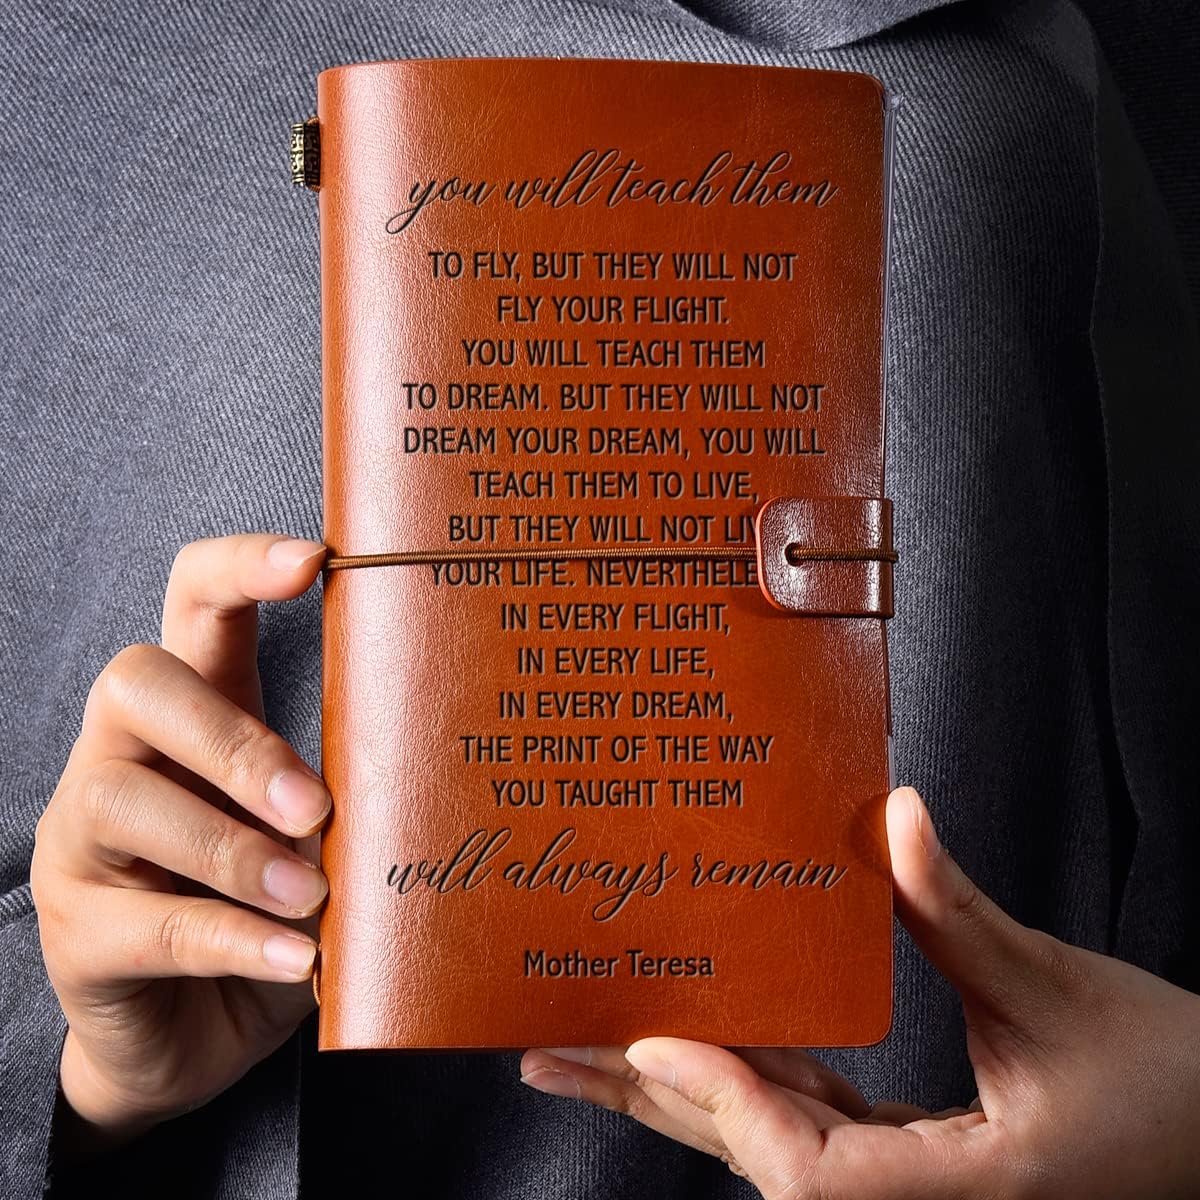 you will teach them
TO FLY, BUT THEY WILL NOT
FLY YOUR FLIGHT.
YOU WILL TEACH THEM
TO DREAM. BUT THEY WILL NOT
DREAM YOUR DREAM, YOU WILL
TEACH THEM TO LIVE,
BUT THEY WILL NOT
YOUR LIFE.
IN EVERY FLIGHT,
IN EVERY LIFE,
IN EVERY DREAM,
THE PRINT OF THE WAY
YOU TAUGHT THEM
will always remain
Mother Teresa